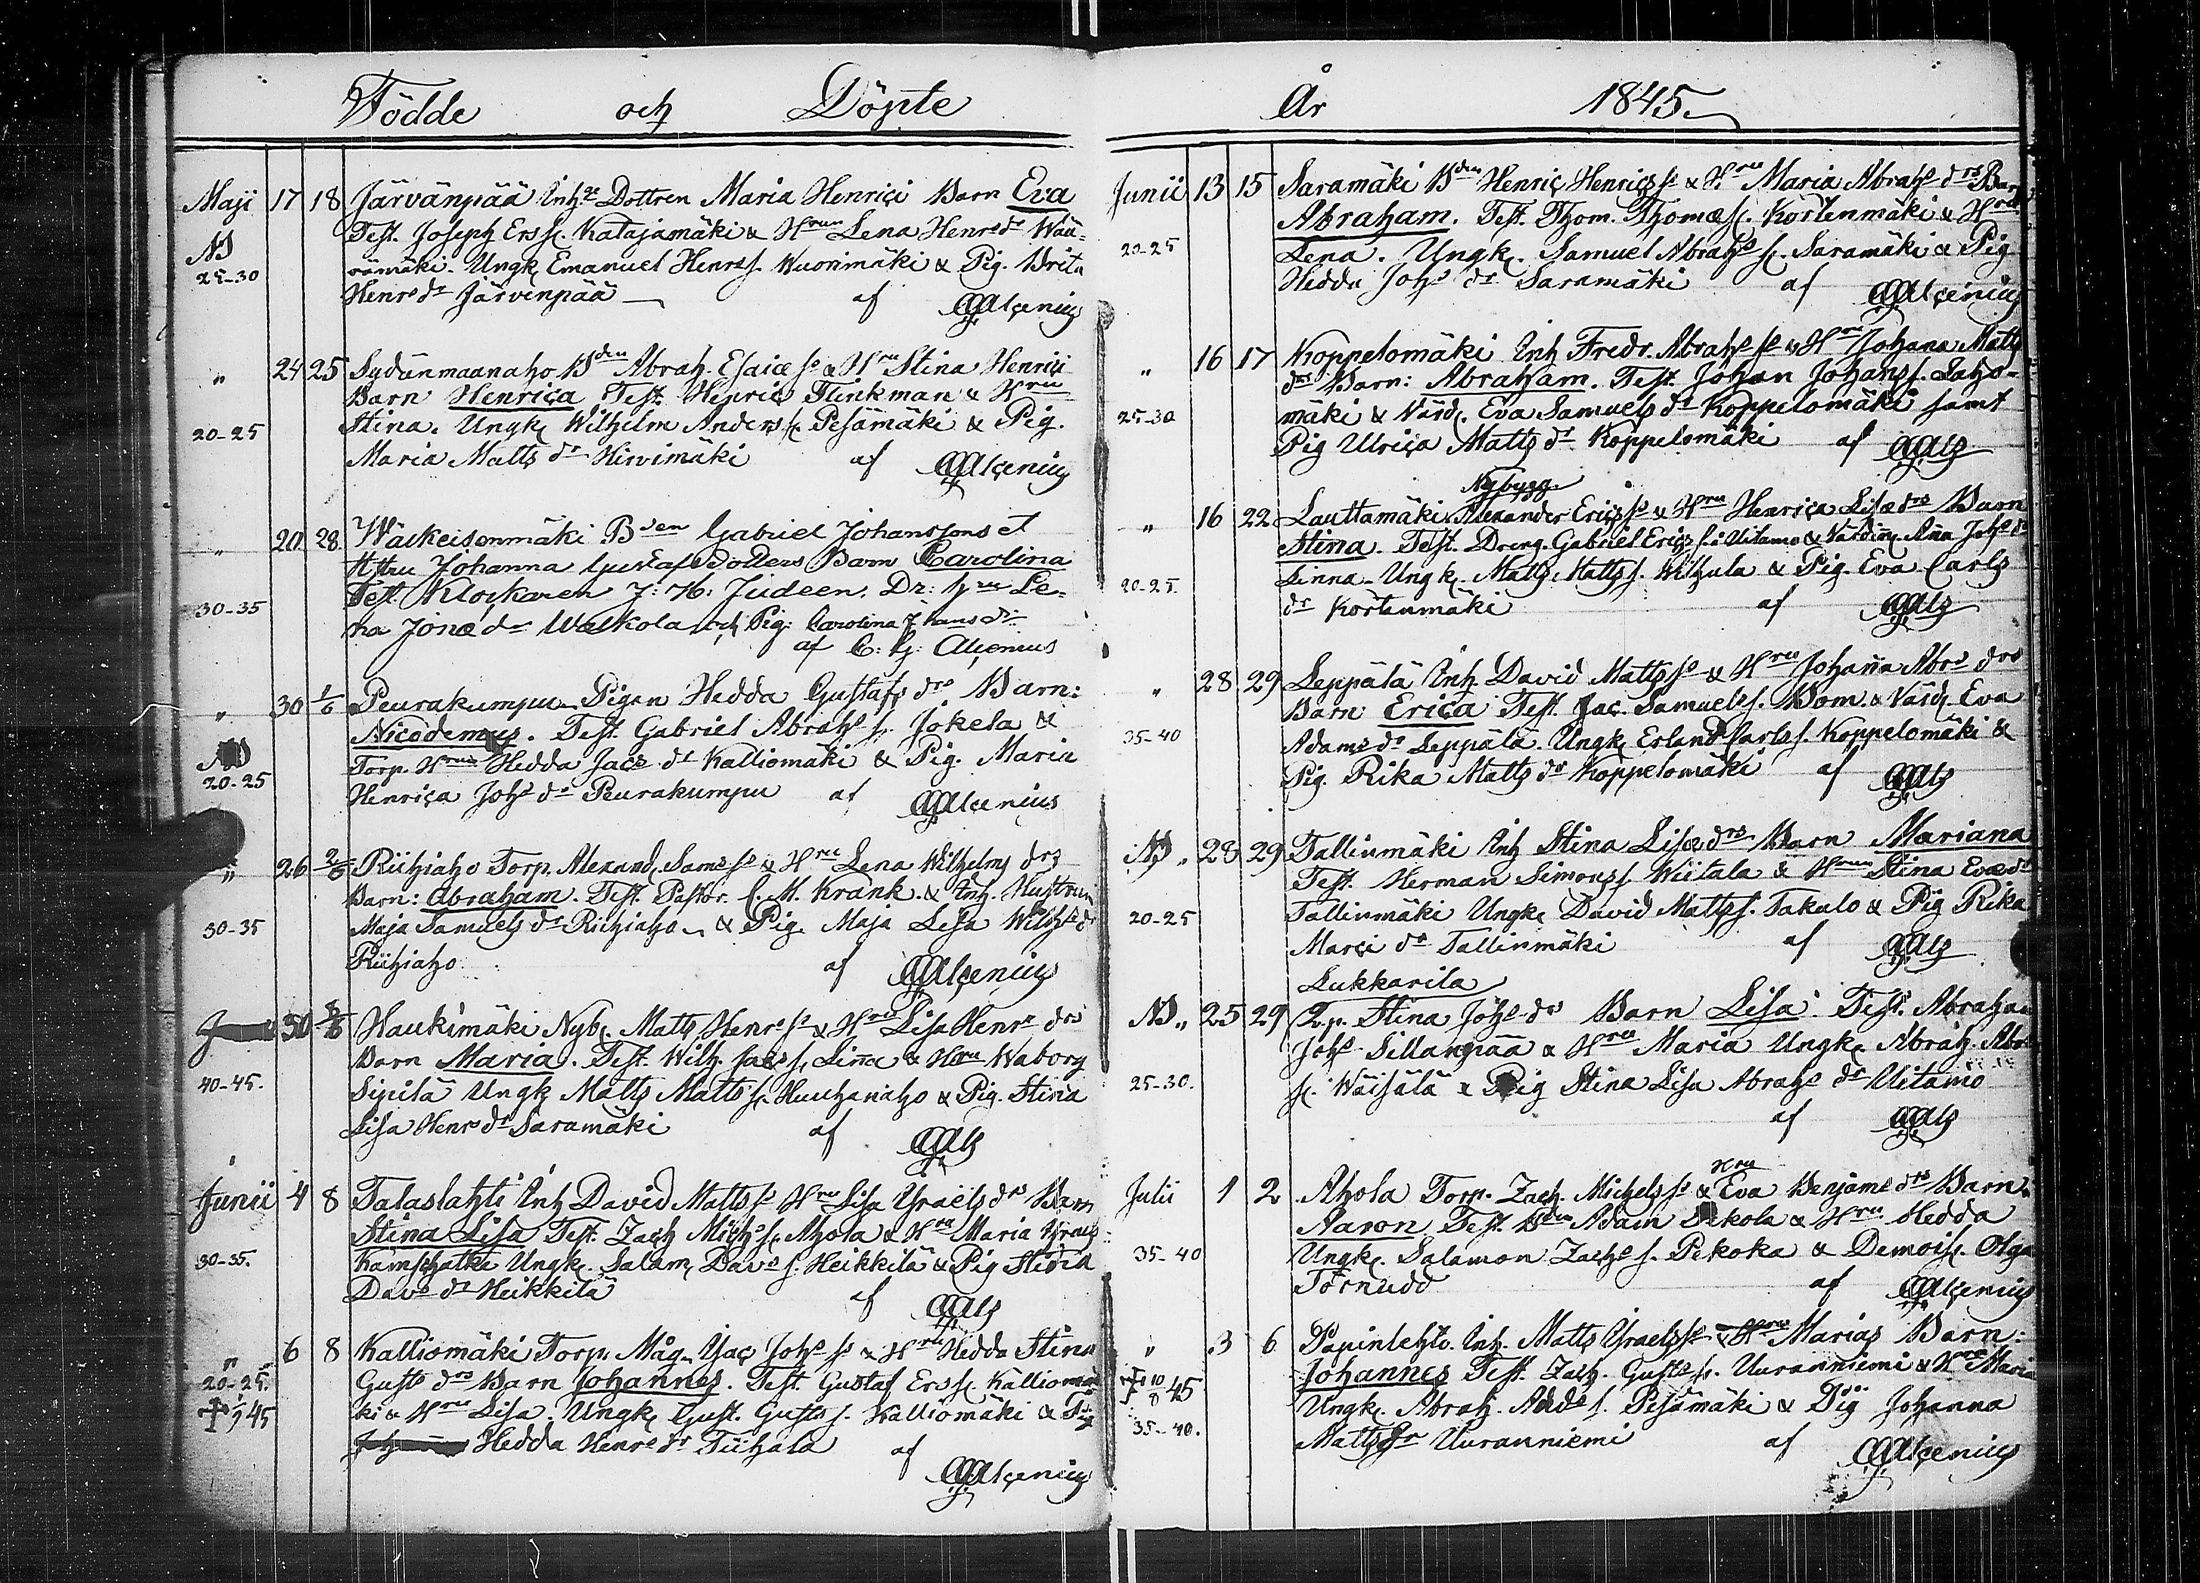 Födde och Döpte
Maji 17 18 Järvänpää Inhs Dottren Maria Henrici Barn Eva
Test. Joseph Ers s. Katajamäki & Hrun Lena Henrs dr Wää-
25-30 rämäki. Ungk. Emanuel Henrs s. Wuorimäki & Pig. Brita
Henrs dr Järvenpää af CGAlcenius
" 24 25 Sydänmaanaho Bden Abrah. Esaiæ so & Hru Stina Henrici
Barn Henrica Test. Henric Flinkman & Hru
20-25 Stina. Ungk. Wilhelm Anders s. Pesämäki & Pig.
Maria Matts dr Hirvimäki af CGAlcenius
" 20 28 Wäikeisenmäki Bden Gabriel Johanssons et
Hstru Johanna Gustafs Dotters Barn Carolina
30-35 Test. Klockaren J: H: Judeen, Dr: hru Le-
na Jonæ dr Walkola och Pig: Carolina Johans dr
af C: G: Alcenius
" 30 1/6 Peurakumpu Pigan Hedda Gustafs drs Barn:
Nicodemus. Test. Gabriel Abrahs s. Jokela &
20-25 Torp. Hrun Hedda Jacs dr Kalliomäki & Pig. Maria
Henrica Johs dr Peurakumpu af CGAlcenius
" 26 2/6 Riihiaho Torp. Alexand. Sams so & Hru Lena Wilhelms drs
Barn: Abraham. Test. Pastor. C. M. Krank. & Inh. Hustrun
30-35 Maja Samuels dr Riihiaho & Pig. Maja Lisa Wilhs dr
Riihiaho af CGAlcenius
30 8/6 Haukimäki Nyb. Matts Henrs so & Hru Lisa Henrs drs
Barn Maria. Test. Wilh. Jacs s. Linna & Hru Waborg
40-45. Sipilä Ungk. Matts Matts s. Huuhanaho & Pig. Stina
Lisa Henrs dr Saramäki af CGAls
Junii 4 8 Talaslahti Inh David Matts so Hru Lisa Ysraels drs Barn
Stina Lisa Test. Zach Michs s. Ahola & Hru Maria Ysraels
30-35. Kamschatka Ungk. Salam. Davs s. Heikkilä & Pig Hedda
Davs dr Heikkilä af CGAls
" 6 8 Kalliomäki Torp. Måg. Jac Johs so & Hru Hedda Stina
20-25. Gusts drs Barn Johannes. Test. Gustaf Ers s. Kalliomä-
ki & Hru Lisa. Ungk. Gust. Gusts s. Kalliomäki & Pig
Hedda Henrs dr Tiihala af CGAlcenius
År 1845.
Junii 13 15 Saramäki Bden Henric Henrics so & Hru Maria Abrahs drs Barn
Abraham. Test. Thom. Thomæ s. Körtenmäki & Hru
20-25 Lena. Ungk. Samuel Abrahs s. Saramäki & Pig
Hedda Johs dr Saramäki af CGAlcenius
" 16 17 Koppelomäki Inh Fredr. Abrahs so & Hru Johana Matts
drs Barn: Abraham. Test. Johan Johans s. Laho-
25-30 mäki & Värd. Eva Samuels dr Koppelomäki samt
Pig Ulrica Matts dr Koppelomäki af CGAls
Nybygg.
" 16 22 Lauttamäki Alexander Erics so & Hru Henrica Lisæ drs Barn
Stina. Test. Dreng. Gabriel Erics s. i Uitamo & Värdin. Anna Johs dr
20-25. Linna. Ungk. Matts Matts s. Wihula & Pig. Eva Carls
dr Körtenmäki af CGAls
" 28 29 Leppälä Inh. David Matts so & Hru Johanna Abrs drs
Barn Erica Test. Jac. Samuels s. Bom. & Värd. Eva
35-40 Adams dr Leppälä. Ungk. Erland Carls s. Koppelomäki &
Pig. Rika Matts dr Koppelomäki af CGAls
" 28 29 Tallinmäki Inh Stina Lisæ drs Barn Mariana
Test. Herman Simons s. Wiitala & Hrun Stina Evæ dr
20-25 Tallinmäki Ungk. David Matts s. Takalo & Pig Rika
Marci dr Tallinmäki af CGAls
Lukkarila
" 25 29 Stina Johs drs Barn Lisa. Test. Abraham
Johs Sillanpää & Hru Maria Ungk. Abrah. Abrs
25-30. s. Wäisälä & Pig Stina Lisa Abrahs dr Uitamo
af CGAls
Hru
Julii 1 2 Ahola Torp. Zach. Michels so & Eva Benjams drs Barn.
Aaron. Test. Bden Adam Pekola & Hru Hedda
35-40 Ungk. Salamon Zachs s. Pekoka & Demois. Olga
Törnudd af CGAlcenius
" 3 6 Papinlehto. Inh. Matts Ysraels so & Hrus Marias Barn:
† 10/8 45 Johannes Test. Zach. Gusts s. Uuranniemi & Hru Maria
Ungk. Abrah. Adds s. Pesämäki & Pig Johanna
35-40. Matts dr Uuranniemi af CGAlcenius